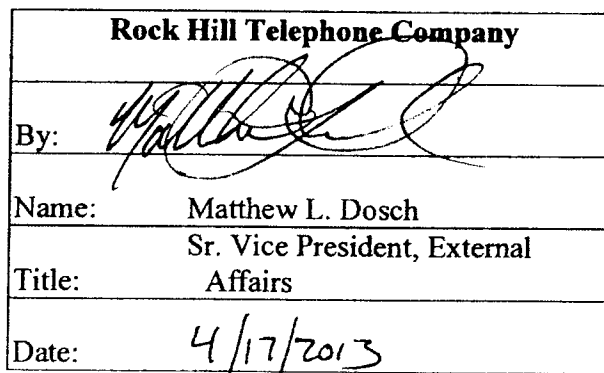 Rock Hill Telephone Company
By:
Name: Matthew L. Dosch
Sr. Vice President, External
Title: Affairs
Date: 4/17/2013